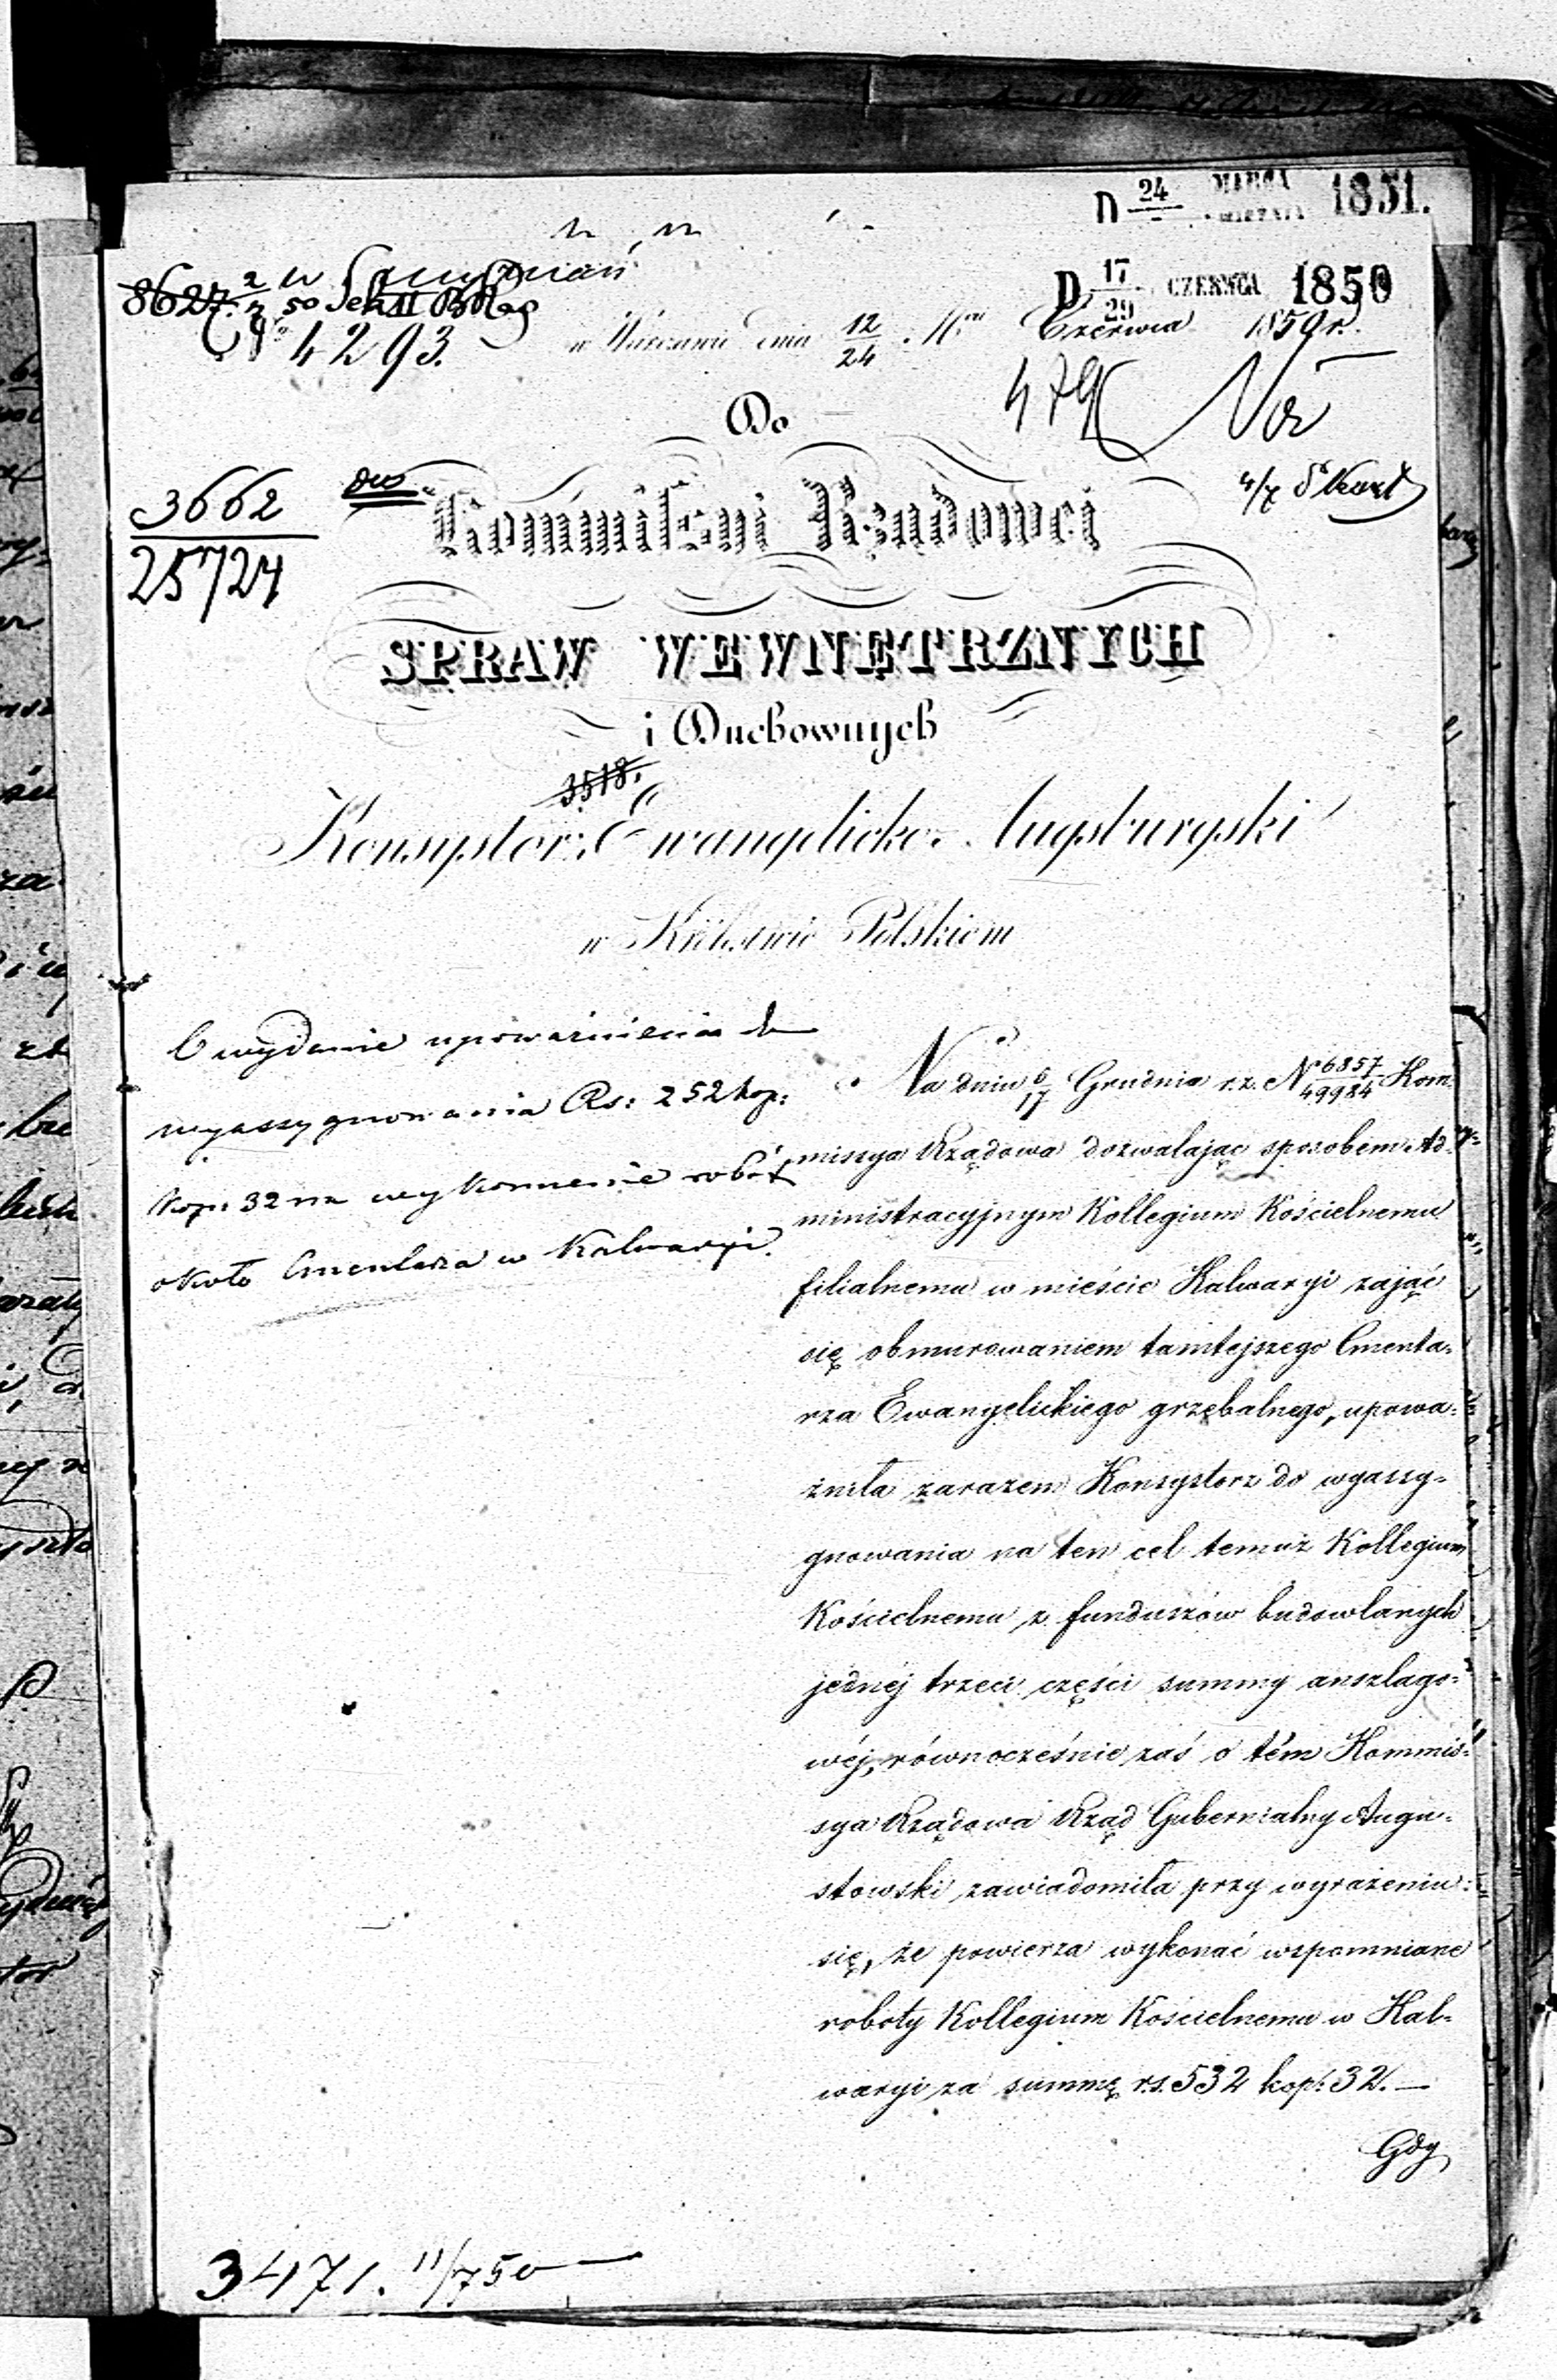 D 24 MARCA 1851.
D 17/29 CZERWCA 1850
8627. 2/7 50 Sek II
№ 4293.
w Warszawie dnia 12/24 Czerwca 1850 r.
Do
3662
25724
Kommissyi Rządowej
SPRAW WEWNĘTRZNYCH
i Duchownych
3518.
Konsystorz Ewangelicko-Augsburgski
w Królestwie Polskiem
O wydanie upoważnienia do
wyassygnowania Rs: 252 kop:
kop: 32 na wykonanie robót
około Cmentarza w Kalwaryi.
Na dniu 5/17 Grudnia r.z. N 6857/49984 Kom=
missya Rządowa dozwalając sposobem Ad=
ministracyjnym Kollegium Kościelnemu
filialnemu w mieście Kalwaryi zająć
się obmurowaniem tamtejszego Cmenta=
rza Ewangelickiego grzebalnego, upowa=
żniła zarazem Konsystorz do wyassy=
gnowania na ten cel temuż Kollegium
Kościelnemu z funduszów budowlanych
jednéj trzeci części summy anszlago=
wéj, równocześnie zaś o tém Kommis=
sya Rządowa Rząd Gubernialny Augu=
stowski zawiadomiła przy wyrażeniu
się, że powierza wykonać wspomniane
roboty Kollegium Kościelnemu w Kal=
waryi za summę r.s. 532 kop: 32. —
Gdy
3471. 11/7 50